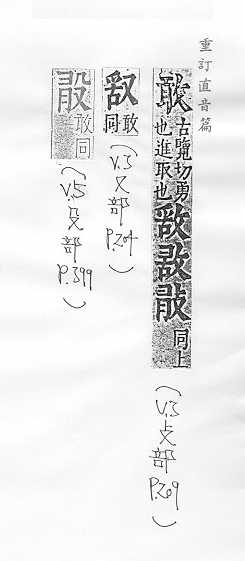 重訂直音篇
敢 古覽切勇也進取也 同上 (V.3 攴部 P.209)
敢同 (V.3 又部 P.204)
敢同 (V.5 殳部 P.399)